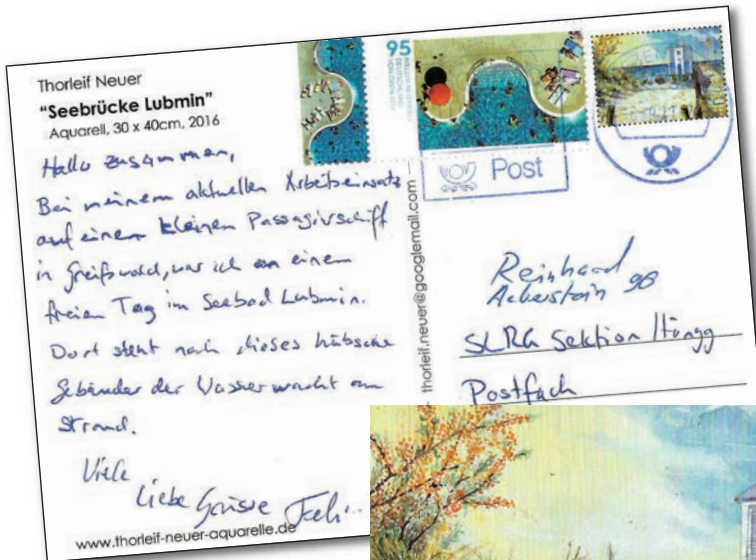 Thorleif Neuer
"Seebrücke Lubmin"
Aquarell, 30 x 40cm, 2016
Hallo zusammen,
Bei meinem aktuellen Arbeitseinsatz
auf einem kleinen Passagierschiff
in Greifswald, war ich an einem
freien Tag im Seebad Lubmin.
Dort steht noch dieses hübsche
Gebäude der Wasserwacht am
Strand.
Viele
liebe Grüsse
www.thorleif-neuer-aquarelle.de
thorleif.neuer@googlemail.com
95
DEUTSCHLAND
VON OBEN
Post
Reinhard
SLRG Sektion Höngg
Postfach